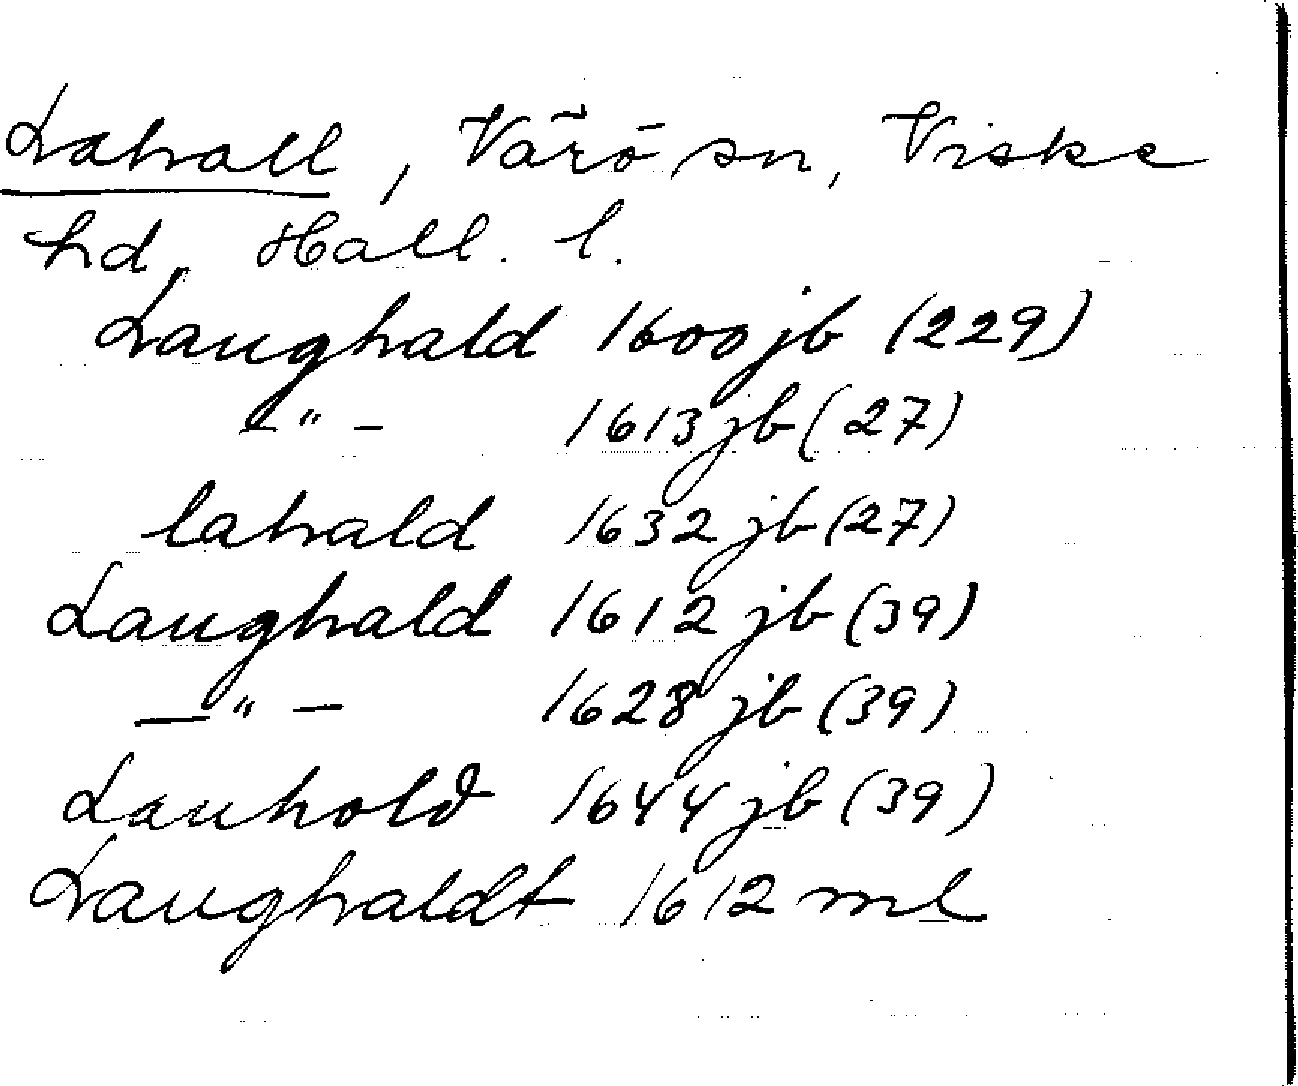 Lahall, Värö sn, Viske
hd, Hall. l.
Laughald 1600 jb (229)
-"- 1613 jb (27)
lahald 1632 jb (27)
Laughald 1612 jb (39)
-"- 1628 jb (39)
Lauhold 1644 jb (39)
Laughaldt 1612 ml